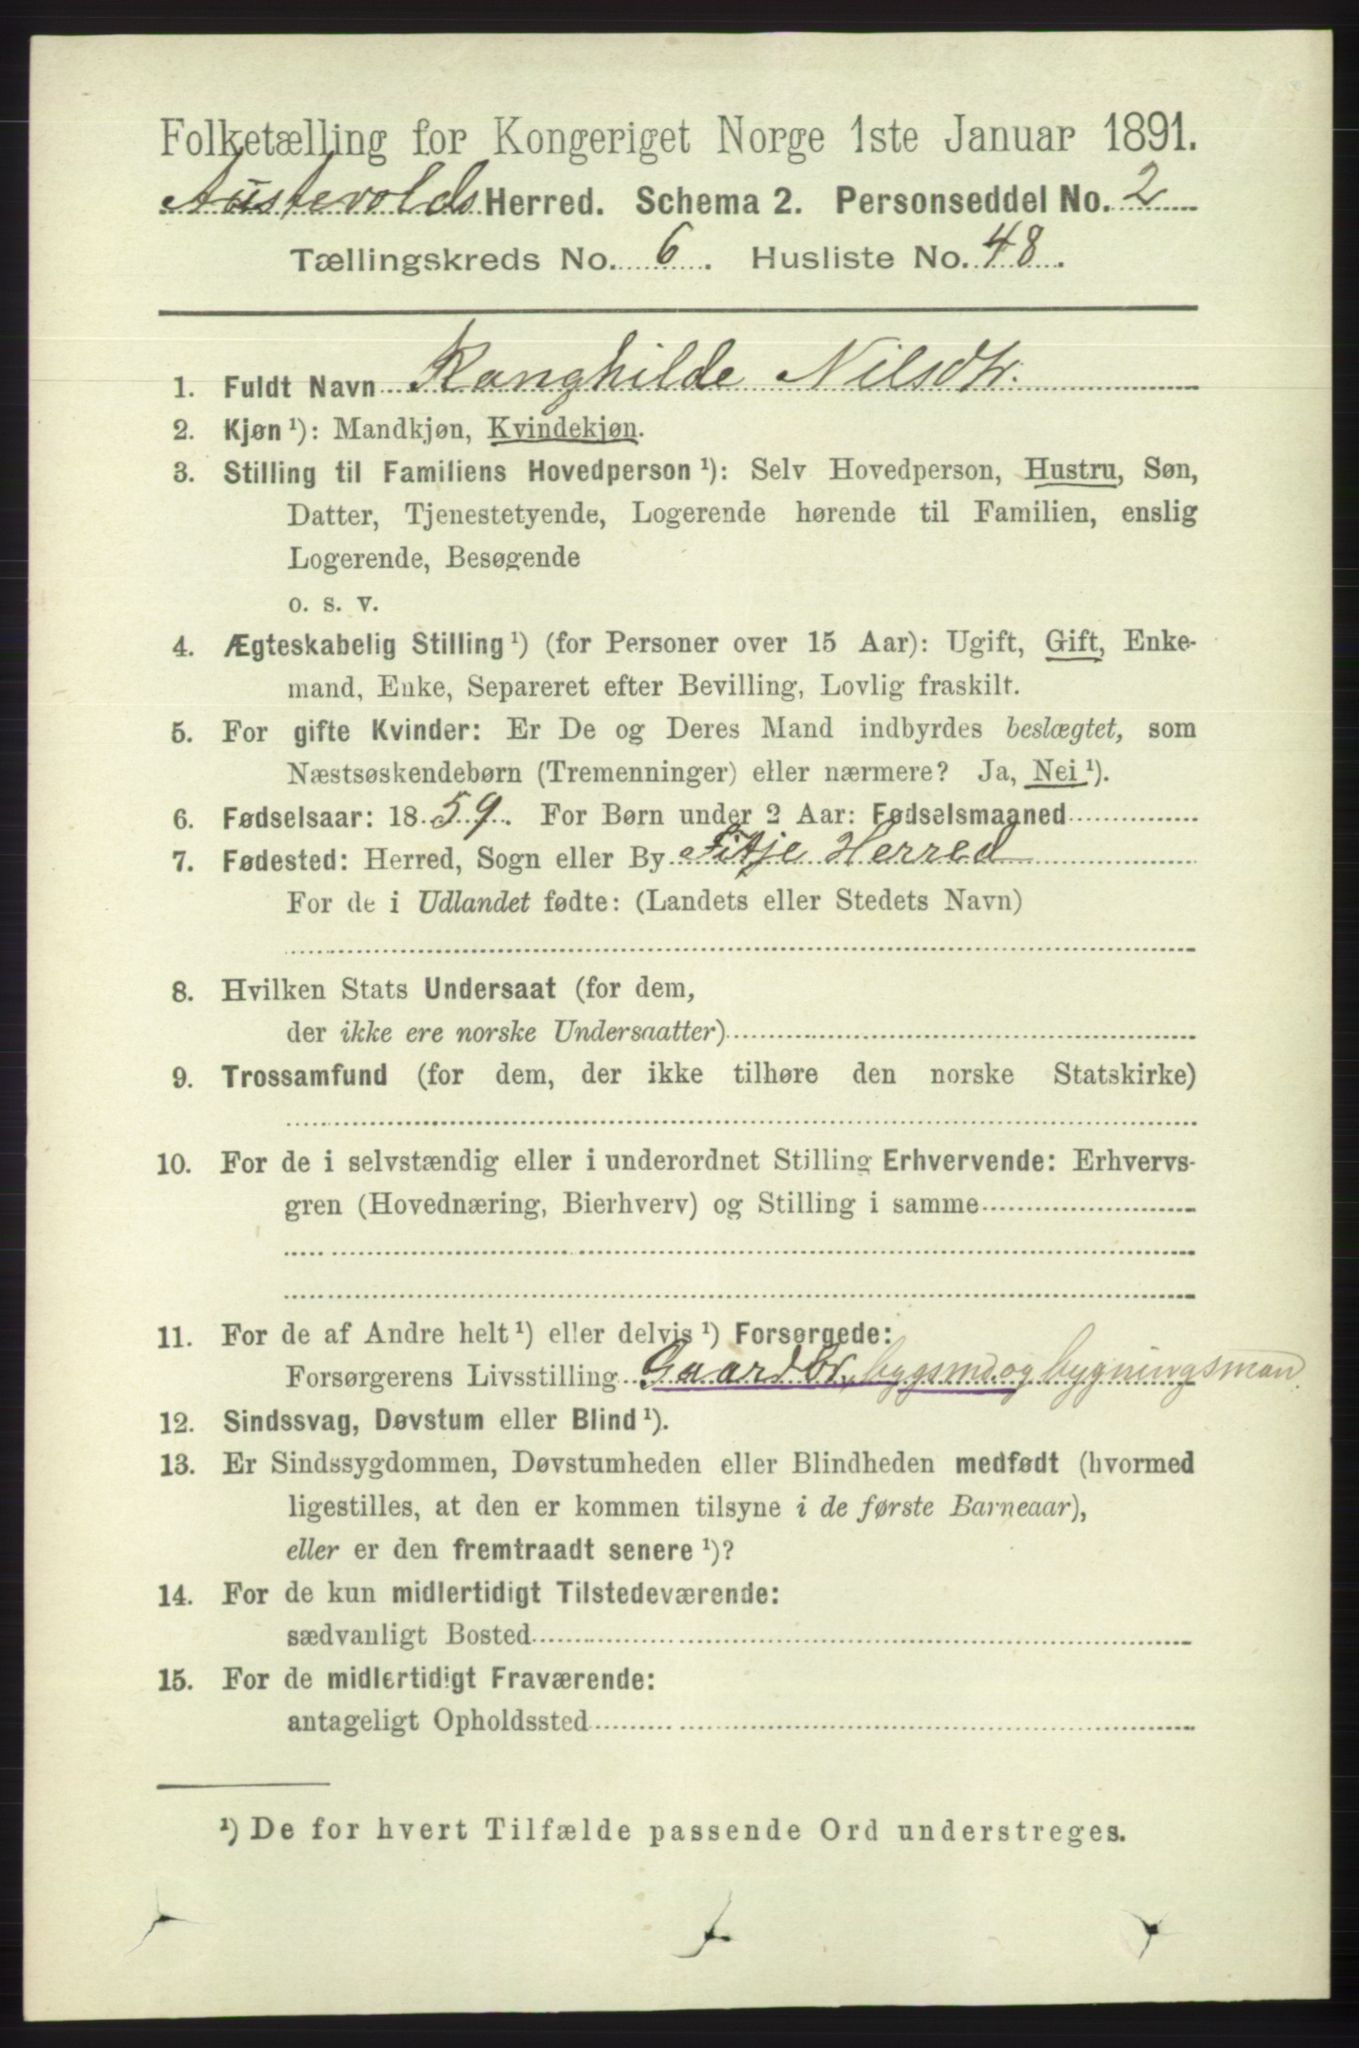 Folketælling for Kongeriget Norge 1ste Januar 1891.
Austevolds Herred. Schema 2. Personseddel No. 2
Tællingskreds No. 6. Husliste No. 48.
1. Fuldt Navn Ranghilde Nilsdtr.
2. Kjøn ¹): Mandkjøn, Kvindekjøn.
3. Stilling til Familiens Hovedperson ¹): Selv Hovedperson, Hustru, Søn,
Datter, Tjenestetyende, Logerende hørende til Familien, enslig
Logerende, Besøgende
o. s. v.
4. Ægteskabelig Stilling ¹) (for Personer over 15 Aar): Ugift, Gift, Enke-
mand, Enke, Separeret efter Bevilling, Lovlig fraskilt.
5. For gifte Kvinder: Er De og Deres Mand indbyrdes beslægtet, som
Næstsøskendebørn (Tremenninger) eller nærmere? Ja, Nei ¹).
6. Fødselsaar: 1859. For Børn under 2 Aar: Fødselsmaaned
7. Fødested: Herred, Sogn eller By Fitje Herred
For de i Udlandet fødte: (Landets eller Stedets Navn)
8. Hvilken Stats Undersaat (for dem,
der ikke ere norske Undersaatter)
9. Trossamfund (for dem, der ikke tilhøre den norske Statskirke)
10. For de i selvstændig eller i underordnet Stilling Erhvervende: Erhvervs-
gren (Hovednæring, Bierhverv) og Stilling i samme
11. For de af Andre helt ¹) eller delvis ¹) Forsørgede:
Forsørgerens Livsstilling Gaardbr, bygsmd og bygningsman
12. Sindssvag, Døvstum eller Blind ¹).
13. Er Sindssygdommen, Døvstumheden eller Blindheden medfødt (hvormed
ligestilles, at den er kommen tilsyne i de første Barneaar),
eller er den fremtraadt senere ¹)?
14. For de kun midlertidigt Tilstedeværende:
sædvanligt Bosted
15. For de midlertidigt Fraværende:
antageligt Opholdssted
¹) De for hvert Tilfælde passende Ord understreges.